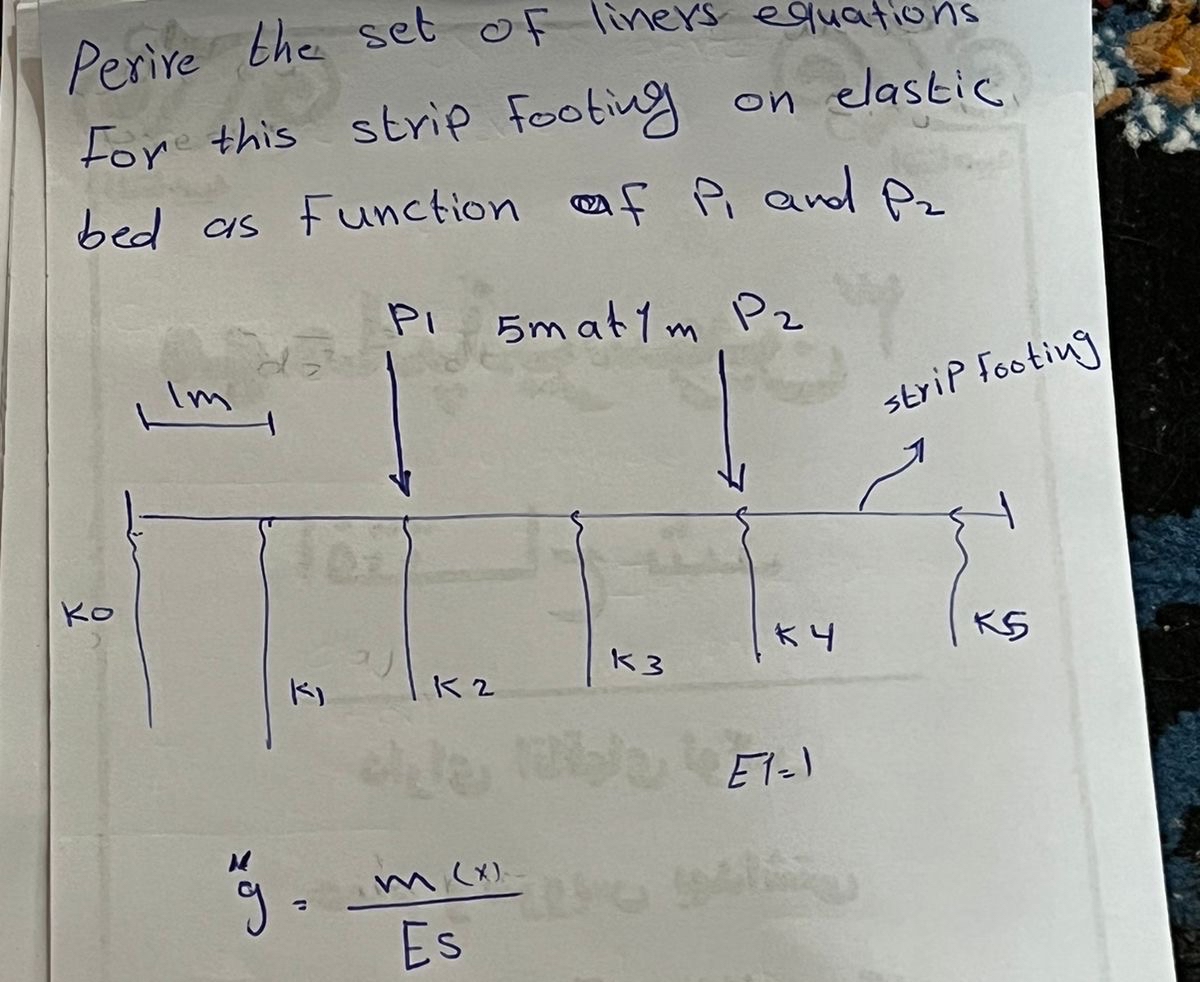 Perire the set of liners equations
For this strip footing on elastic
bed as function of P1 and P2
P1 5m at 1 m P2
1m
strip footing
K0
K1
K2
K3
K4
K5
EI=1
g'' = m(x)
Es